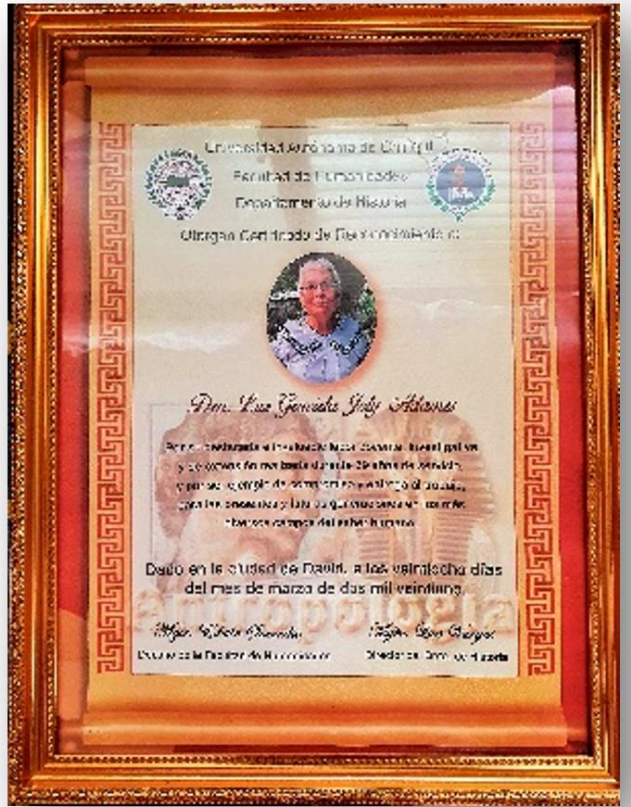 Universidad Autónoma de Chiriquí
Facultad de Humanidades
Departamento de Historia
Otorgan Certificado de Reconocimiento a:
Dra. Luz Graciela Joly Adames
Por su destacada e invaluable labor docente, investigativa
y de extensión realizada durante 29 años de servicio,
y por ser ejemplo de compromiso y entrega al trabajo,
para las presentes y futuras generaciones en los más
diversos campos del saber humano
Dado en la ciudad de David, a los veintiocho días
del mes de marzo de dos mil veintiuno.
Antropología
Decano de la Facultad de Humanidades
Director del Dpto. de Historia